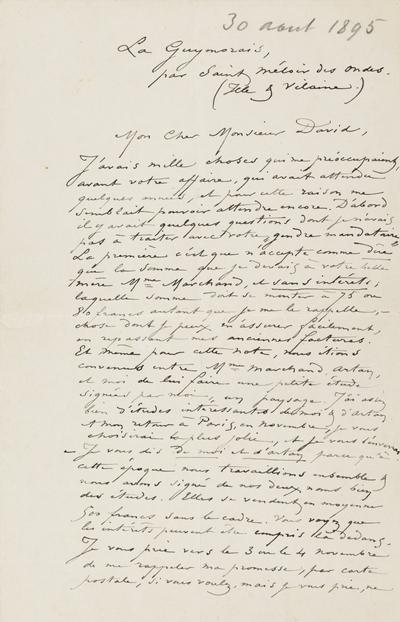 30 aout 1895
La Guymorais,
par Saint Méloir des ondes.
(Ille & Vilaine.)
Mon Cher Monsieur David,
J'avais mille choses qui me préoccupaient,
avant votre affaire, qui avait attendu
quelques années, et pour cette raison me
semblait pouvoir attendre encore. D'abord
il y avait quelques questions dont je n'avais
pas à traiter avec votre gendre mandataire
La première c'est que n'accepte comme dûe
que la somme que je devais à votre belle
mère Mme Marchand, et sans intérêts,
laquelle somme doit se monter à 75 ou
80 francs autant que je me le rappelle, -
chose dont je peux m'assurer facilement,
en repassant mes anciennes factures.
Et même pour cette note, nous étions
convenus entre Mme Marchand, Artan,
et moi de lui faire une petite étude
signée par moi, un paysage. J'ai
bien d'études intéressantes de moi & d'Artan
et mon retour à Paris, en novembre, je vous
choisirai la plus jolie, et je vous l'enverrai
- Je vous dis de moi et d'Artan parce qu'à
cette époque nous travaillions ensemble &
nous avons signé de nos deux noms bien
des études. Elles se vendent en moyenne
500 francs sans le cadre. Vous voyez que
les intérêts peuvent être compris là dedans.
Je vous prie vers le 3 ou le 4 novembre
de me rappeler ma promesse, par carte
postale, si vous voulez, mais je vous prie, ne